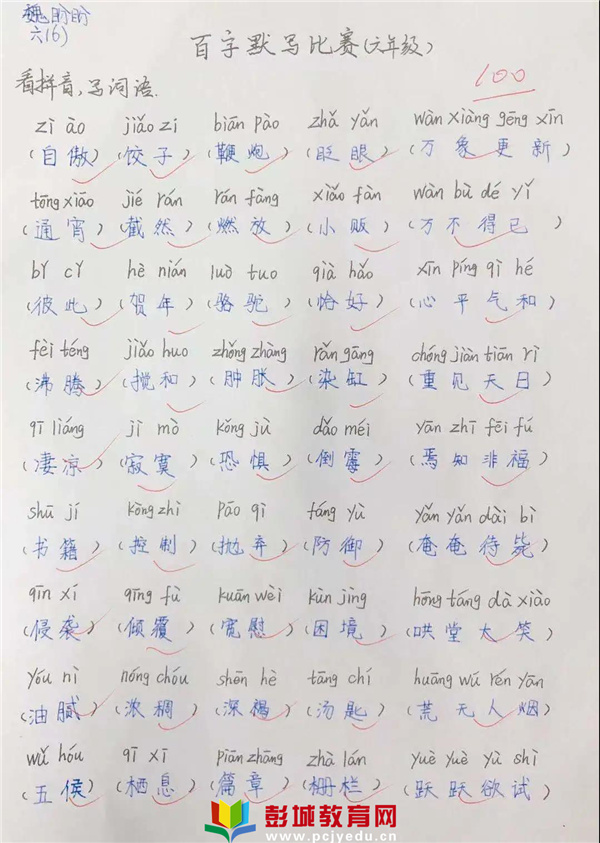 魏盼盼
六(6)
百字默写比赛(六年级)
100
看拼音,写词语.
zì ào jiǎo zi biān pào zhǎ yǎn wàn xiàng gēng xīn
(自傲)(饺子)(鞭炮)(眨眼)(万象更新)
tōng xiāo jié rán rán fàng xiǎo fàn wàn bù dé yǐ
(通宵)(截然)(燃放)(小贩)(万不得已)
bǐ cǐ hè nián luò tuo qià hǎo xīn píng qì hé
(彼此)(贺年)(骆驼)(恰好)(心平气和)
fèi téng jiǎo huo zhǒng zhàng rǎn gāng chóng jiàn tiān rì
(沸腾)(搅和)(肿胀)(染缸)(重见天日)
qī liáng jì mò kǒng jù dǎo méi yān zhī fēi fú
(凄凉)(寂寞)(恐惧)(倒霉)(焉知非福)
shū jí kòng zhì pāo qì fáng yù yǎn yǎn dài bì
(书籍)(控制)(抛弃)(防御)(奄奄待毙)
qīn xí qīng fù kuān wèi kùn jìng hōng táng dà xiào
(侵袭)(倾覆)(宽慰)(困境)(哄堂大笑)
yóu nì nóng chóu shēn hè tāng chí huāng wú rén yān
(油腻)(浓稠)(深褐)(汤匙)(荒无人烟)
wǔ hóu qī xī piān zhāng zhà lán yuè yuè yù shì
(五侯)(栖息)(篇章)(栅栏)(跃跃欲试)
彭城教育网
www.pcjyedu.cn